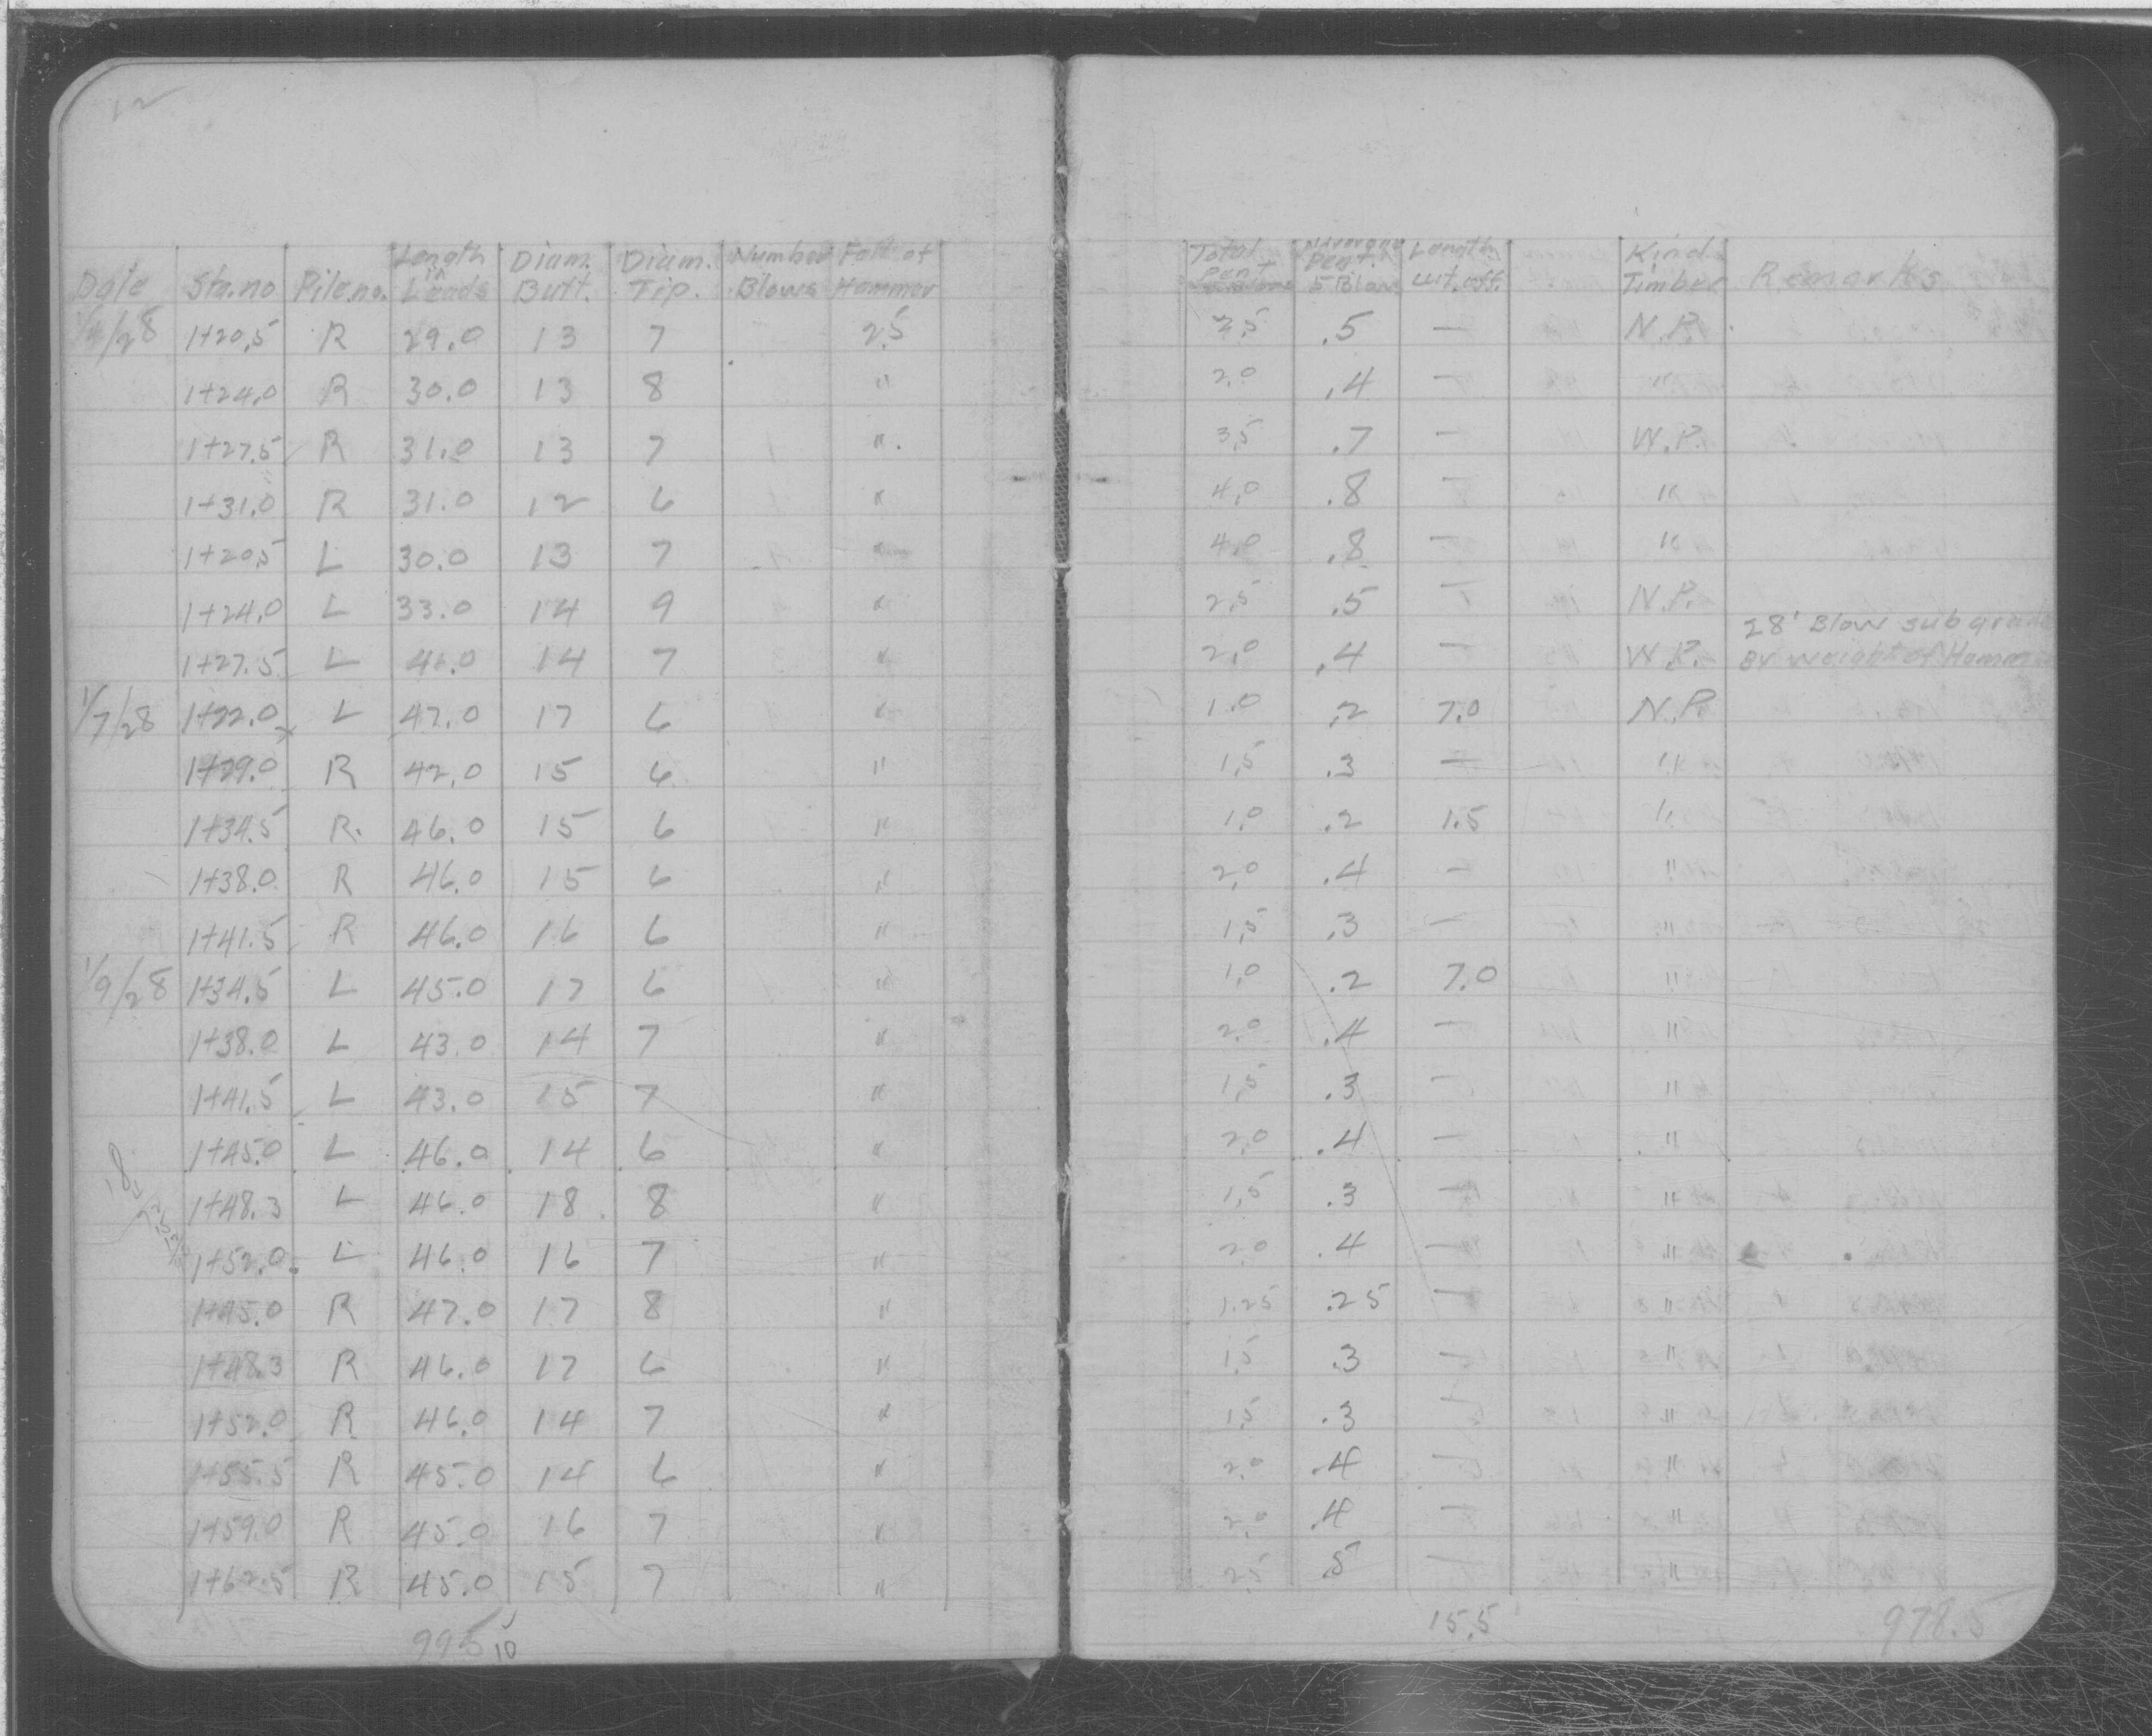 12
Date Sta.no Pile.no. Length in Leads Diam. Butt. Diam. Tip. Number Blows Fall of Hammer Total Pent Average Pent. 5 Blow Length cut.off. Kind Timber Remarks
1/4/28 1+20.5 R 29.0 13 7 25 2.5 .5 — N.P.
1+24.0 R 30.0 13 8 " 2.0 .4 — "
1+27.5 R 31.0 13 7 " 3.5 .7 — W.P.
1+31.0 R 31.0 12 6 " 4.0 .8 — "
1+20.5 L 30.0 13 7 " 4.0 .8 — "
1+24.0 L 33.0 14 9 " 2.5 .5 — N.P.
1+27.5 L 46.0 14 7 " 2.0 .4 — W.P. 28' Blow subgrade By weight of Hammer
1/7/28 1+22.0 L 47.0 17 6 " 1.0 .2 7.0 N.P.
1+29.0 R 42.0 15 6 " 1.5 .3 — "
1+34.5 R. 46.0 15 6 " 1.0 .2 1.5 "
1+38.0 R 46.0 15 6 " 2.0 .4 — "
1+41.5 R 46.0 16 6 " 1.5 .3 — "
1/9/28 1+34.5 L 45.0 17 6 " 1.0 .2 7.0 "
1+38.0 L 43.0 14 7 " 2.0 .4 — "
1+41.5 L 43.0 15 7 " 1.5 .3 — "
1+45.0 L 46.0 14 6 " 2.0 .4 — "
1+48.3 L 46.0 18 8 " 1.5 .3 — "
1+52.0 L 46.0 16 7 " 2.0 .4 — "
1+45.0 R 47.0 17 8 " 1.25 .25 — "
1+48.3 R 46.0 17 6 " 1.5 .3 — "
1+52.0 R 46.0 14 7 " 1.5 .3 — "
1+55.5 R 45.0 14 6 " 2.0 .4 — "
1+59.0 R 45.0 16 7 " 2.0 .4 — "
1+62.5 R 45.0 15 7 " 2.5 .5 — "
995 10 15.5 978.5